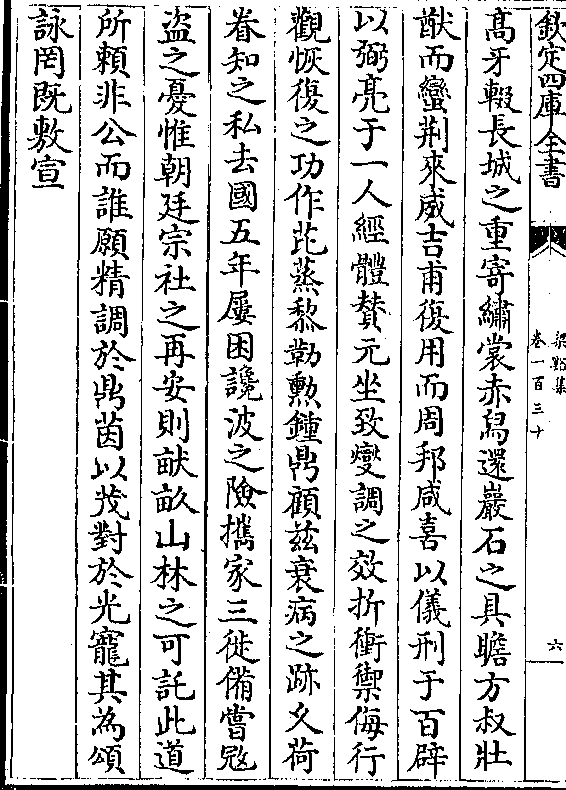 欽定四庫全書
梁谿集
卷一百三十
六
髙牙輟長城之重寄繡裳赤舄還巖石之具瞻方叔壯
猷而蠻荆來威吉甫復用而周邦咸喜以儀刑于百辟
以弼亮于一人經體賛元坐致燮調之效折衝禦侮行
觀恢復之功作芘蒸黎勒勲鐘鼎顧兹衰病之跡久荷
眷知之私去國五年屢困讒波之險攜家三徙備嘗㓂
盗之憂惟朝廷宗社之再安則畎畝山林之可託此道
所頼非公而誰願精調於鼎茵以茂對於光寵其為頌
詠罔既敷宣